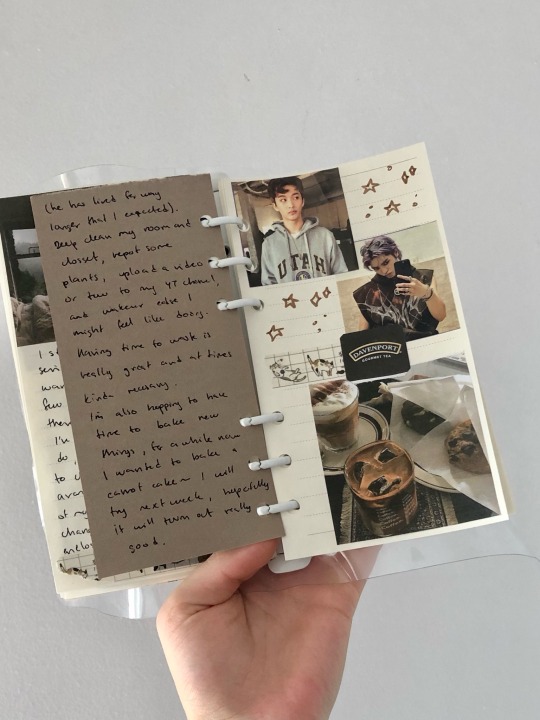 (he has lived for way
longer that I expected).
Deep clean my room and
closset, repot some
plants, upload a video
or two to my YT channel,
and else I
might feel like doing.
Having time to work is
really great and at times
kinda relaxing.
I'm also hopping to have
time to bake new
things, for a while now
I wanted to bake a
carrot cake~ I will
try next week, hopefully
it will turn out really
good.
UTAH
DAVENPORT
GOURMET TEA